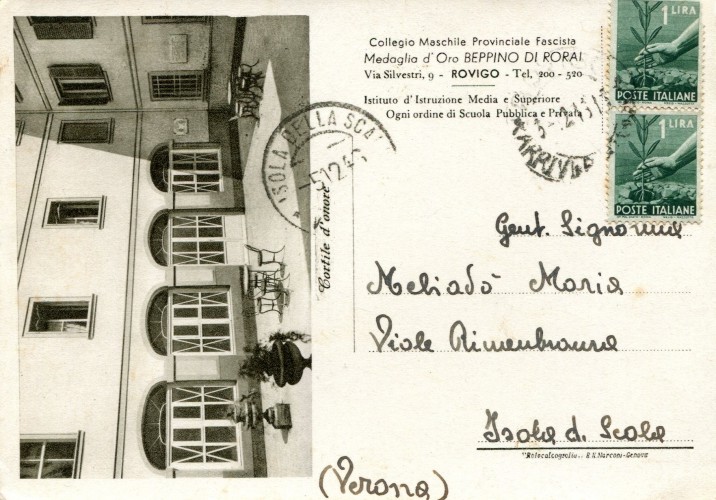 Collegio Maschile Provinciale Fascista
Medaglia d'Oro BEPPINO DI RORAI
Via Silvestri, 9 - ROVIGO - Tel. 200 - 520
Istituto d'Istruzione Media e Superiore
Ogni ordine di Scuola Pubblica e Privata
1 LIRA
POSTE ITALIANE
1 LIRA
POSTE ITALIANE
ISOLA DELLA SCA
-5.12.46
ARRIVI E
Cortile d'onore
Gent. Signorina
Meliadò Maria
Viale Rimembranza
Isola d. Scala
(Verona)
"Rotocalcografia" B.N. Marconi-Genova